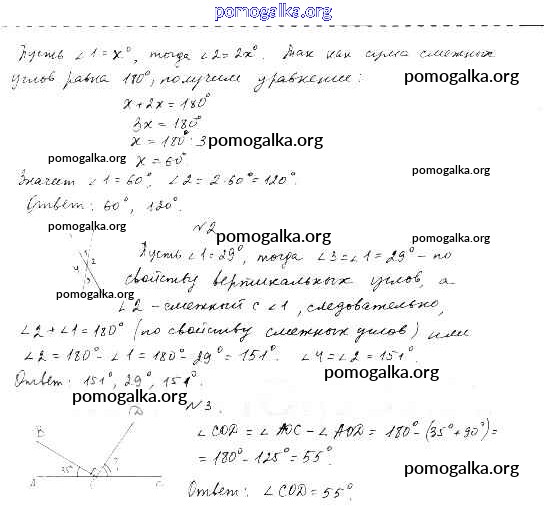 pomogalka.org
Пусть ∠1=x°, тогда ∠2=2x°. Так как сумма смежных
углов равна 180°, получим уравнение:
pomogalka.org
x+2x=180°
3x=180°
x=180°:3
pomogalka.org
pomogalka.org
x=60°
Значит ∠1=60°, ∠2=2·60°=120°.
Ответ: 60°, 120°.
pomogalka.org
№2
pomogalka.org
1
4 2
3
Пусть ∠1=29°, тогда ∠3=∠1=29° – по
свойству вертикальных углов, а
pomogalka.org
∠2 – смежный с ∠1, следовательно,
∠2+∠1=180° (по свойству смежных углов) или
∠2=180°-∠1=180°-29°=151°. ∠4=∠2=151°.
Ответ: 151°, 29°, 151°.
pomogalka.org
pomogalka.org
№3.
D
B
35° ?
A C
∠COD=∠AOC-∠AOD=180°-(35°+90°)=
=180°-125°=55°.
pomogalka.org
Ответ: ∠COD=55°.